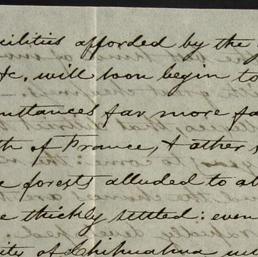 ilities afforded by the
&c, will soon begin to
mttances far more fa
th of France, & other
e forests alluded to ab
e thickly settled: even
ity of Chihuahua wi